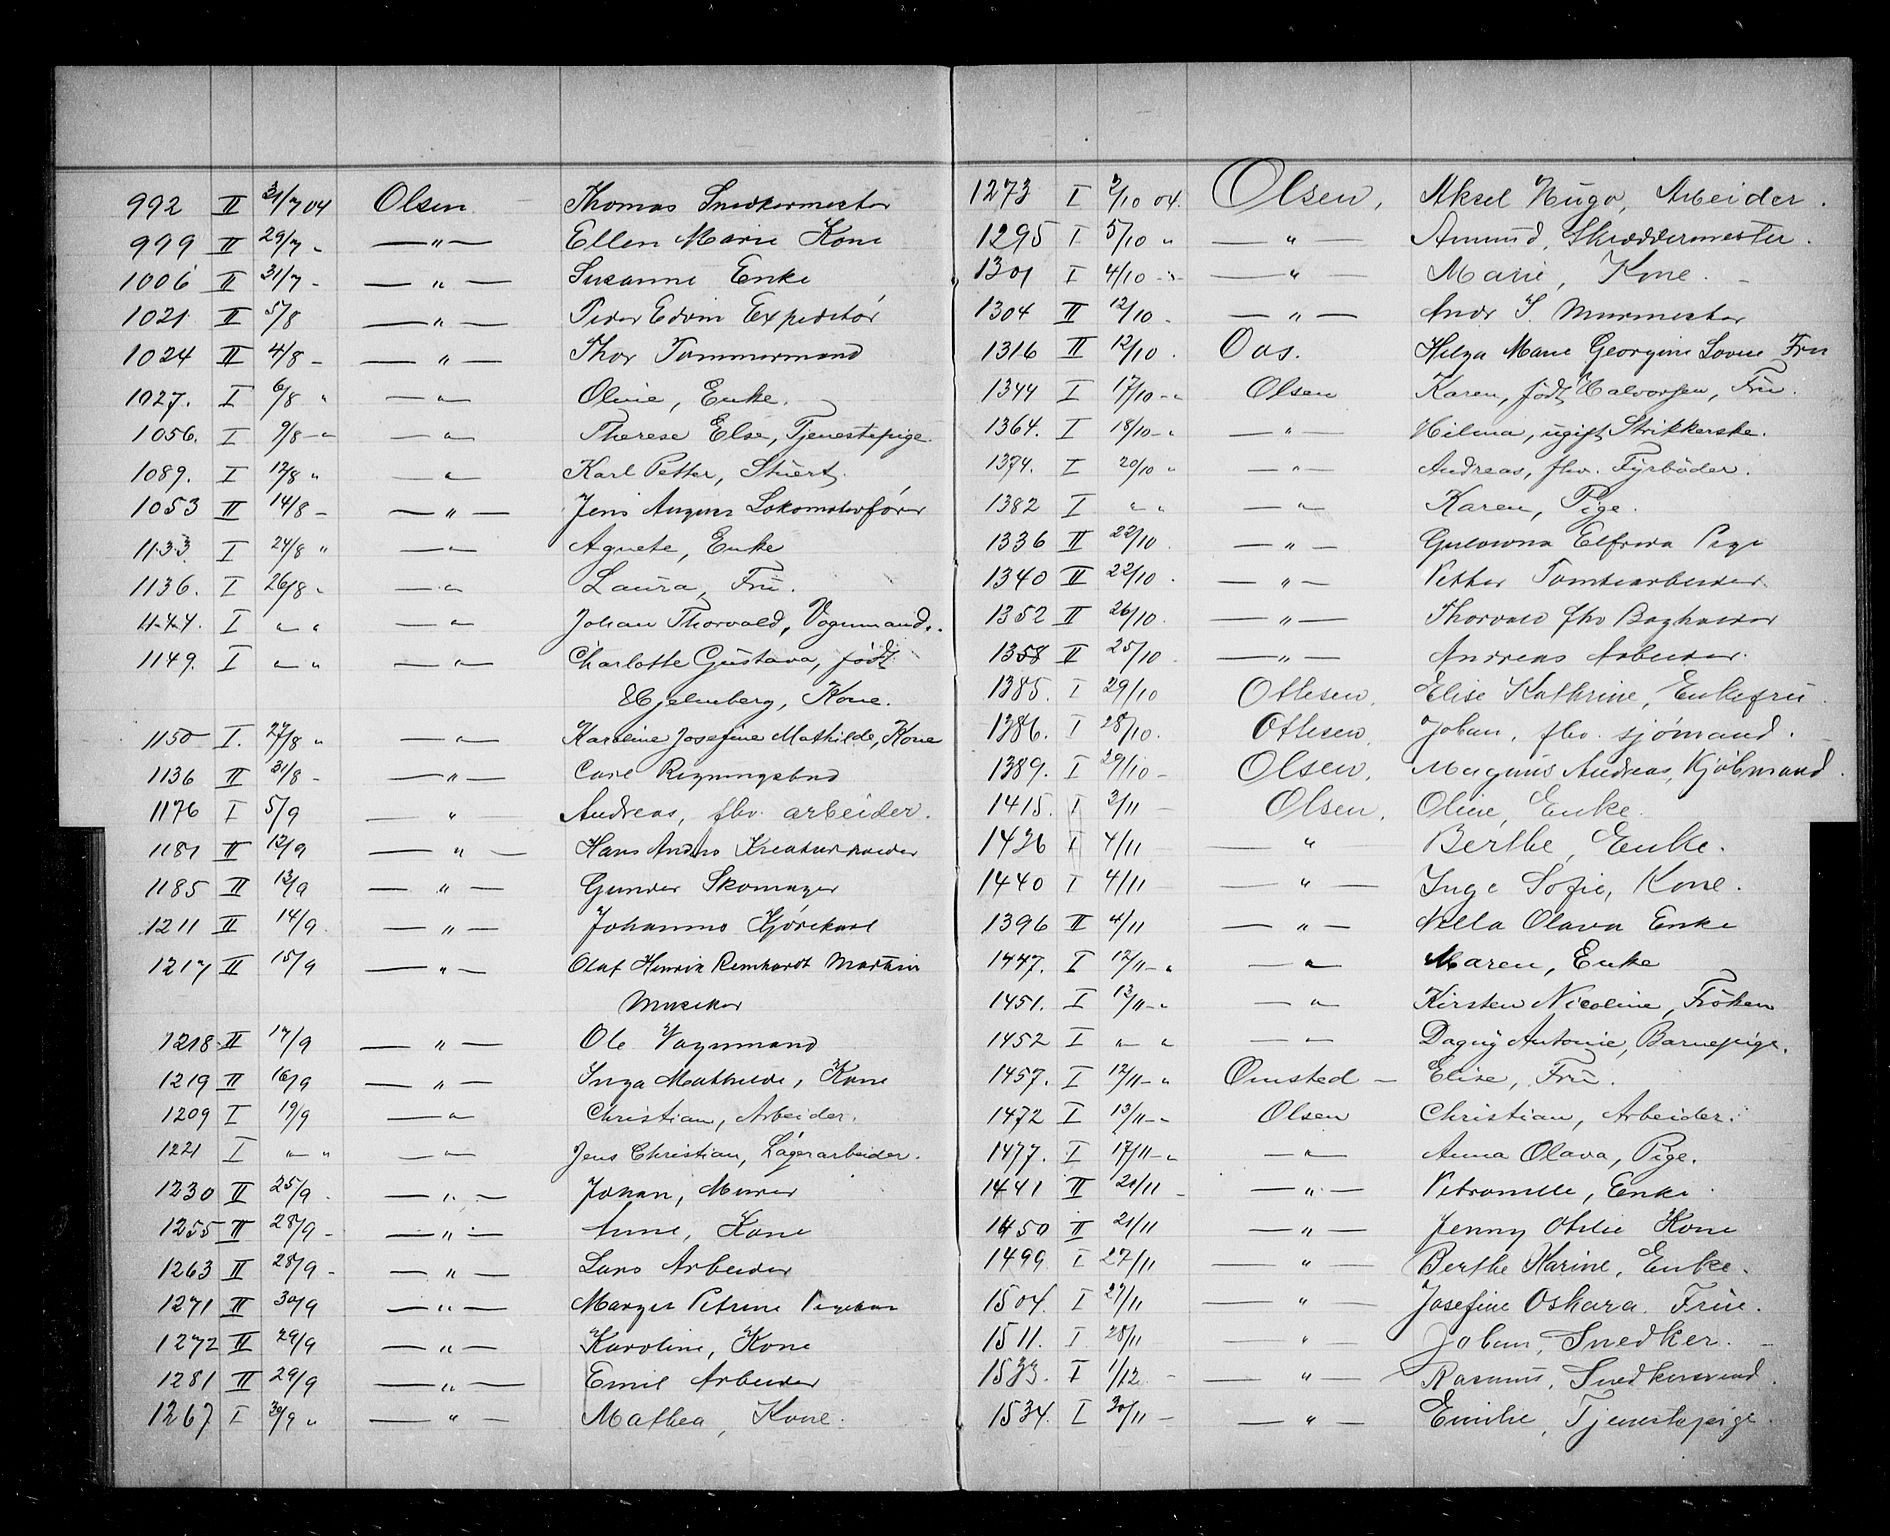 992 II 31/7 04 Olsen Thomas Snedkermester
999 II 29/7 " —"— Ellen Marie Kone
1006 II 31/7 - —"— Susanne Enke
1021 II 5/8 —"— Peder Edvin Expeditør
1024 II 4/8 - —"— Thor Tømmermand
1027. I 6/8 " —"— Oline, Enke.
1056. I 9/8 -" —"— Therese Else, Tjenestepige.
1089. I 12/8 " —"— Karl Petter, Stuert.
1053 II 14/8 - —"— Jens August Lokomotivfører
1133 I 24/8 " —"— Agnete, Enke
1136. I 26/8 " —"— Laura, Fru.
1144. I " " —"— Johan Thorvald, Vognmand.
1149. I " " —"— Charlotte Gustava, født
Hjelmberg, Kone.
1150 I. 27/8 " —"— Karoline Josefine Mathilde, Kone
1136 II 31/8 - —"— Carl Regningsbud
1176 I 5/9 —"— Andreas, fhv. arbeider.
1181 II 12/9 —"— Hans Andrs Kreaturhandler
1185 II 13/9 —"— Gunder Skomager
1211 II 14/9. —"— Johannes Kjørekarl
1217 II 15/9 —"— Olaf Henrik Reinhardt Martin
Musiker
1218 II 17/9 —"— Ole Vognmand
1219 II 16/9 —"— Inga Mathilde, Kone
1209 I 19/9 —"— Christian, Arbeider.
1221 I " " —"— Jens Christian, Lagerarbeider.
1230 II 25/9. —"— Johan, Murer
1255 II 28/9 - —"— Anne, Kone
1263 II 28/9 - —"— Lars Arbeider
1271 II 30/9 —"— Margit Petrine
1272 II 29/9 —"— Karoline, Kone
1281 II 29/9 —"— Emil Arbeider
1267 I 30/9 " —"— Mathea, Kone.
1273 I 2/10 04. Olsen, Aksel Hugo, Arbeider.
1295 I 5/10 " —"— Amund, Skræddermester.
1301 I 4/10 -"- —"— Marie, Kone.
1304 II 12/10. —"— Andr S Murmester
1316 II 12/10. Oas. Helga Marie Georgine Lovise Fru
1344 I 17/10 -" Olsen Karen, født Halvorsen, Fru.
1364. I 18/10 -" —"— Hilma, ugift Strikkerske.
1374. I 20/10 " —"— Andreas, fhv. Fyrbøder.
1382 I " " —"— Karen, Pige.
1336 II 22/10. —"— Gulowna Elfrida Pige
1340 II 22/10. —"— Petter Tomtearbeider
1352 II 26/10. —"— Thorvald fhv Baghandler
1358 II 25/10. —"— Andreas Arbeider.
1385. I 29/10 Ottesen, Elise Kathrine, Enkefru
1386. I 28/10. Ottesen, Johan, fhv. sjømand.
1389. I 29/10 - Olsen, Magnus Andreas, Kjøbmand.
1415. I 3/11 - Olsen, Oline, Enke.
1426 I 4/11 —"— Berthe, Enke.
1440 I 4/11 —"— Inge Sofie, Kone.
1396 II 4/11 —"— Nella Olava Enke
1447. I 12/11 -" —"— Maren, Enke
1451. I 13/11 -" —"— Kirsten Nicoline, Frøken
1452 I " " —"— Dagny Antonie, Barnepige.
1457. I 12/11 -" Omsted - Elise, Fru.
1472 I 13/11 -" Olsen Christian, Arbeider.
1477. I 17/11 -" —"— Anna Olava, Pige.
1441 II 21/11 - —"— Petronelle, Enke.
1450 II 21/11 —"— Jenny Otilie Kone
1499 I 27/11 —"— Berthe Karine, Enke.
1504. I 27/11 —"— Josefine Oskara. Frue.
1511. I. 28/11 —"— Johan, Snedker. -
1533. I 1/12. —"— Rasmus, Snedkersvend.
1534. I 30/11 - —"— Emilie, Tjenestepige.